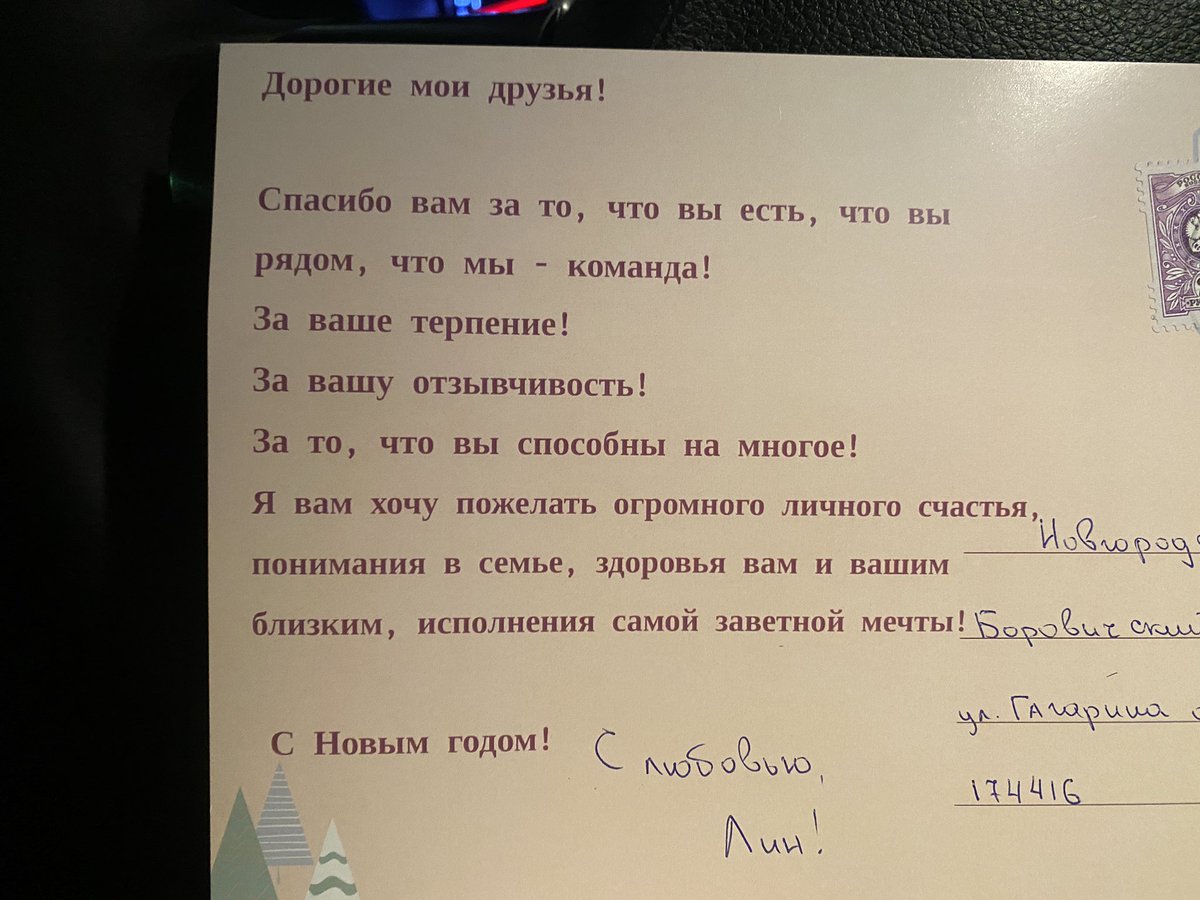 Дорогие мои друзья!
Спасибо вам за то, что вы есть, что вы
рядом, что мы - команда!
За ваше терпение!
За вашу отзывчивость!
За то, что вы способны на многое!
Я вам хочу пожелать огромного личного счастья,
понимания в семье, здоровья вам и вашим
близким, исполнения самой заветной мечты!
С Новым годом!
С любовью,
Лин!
Новгородс
Боровичский
ул. Гагарина
174416